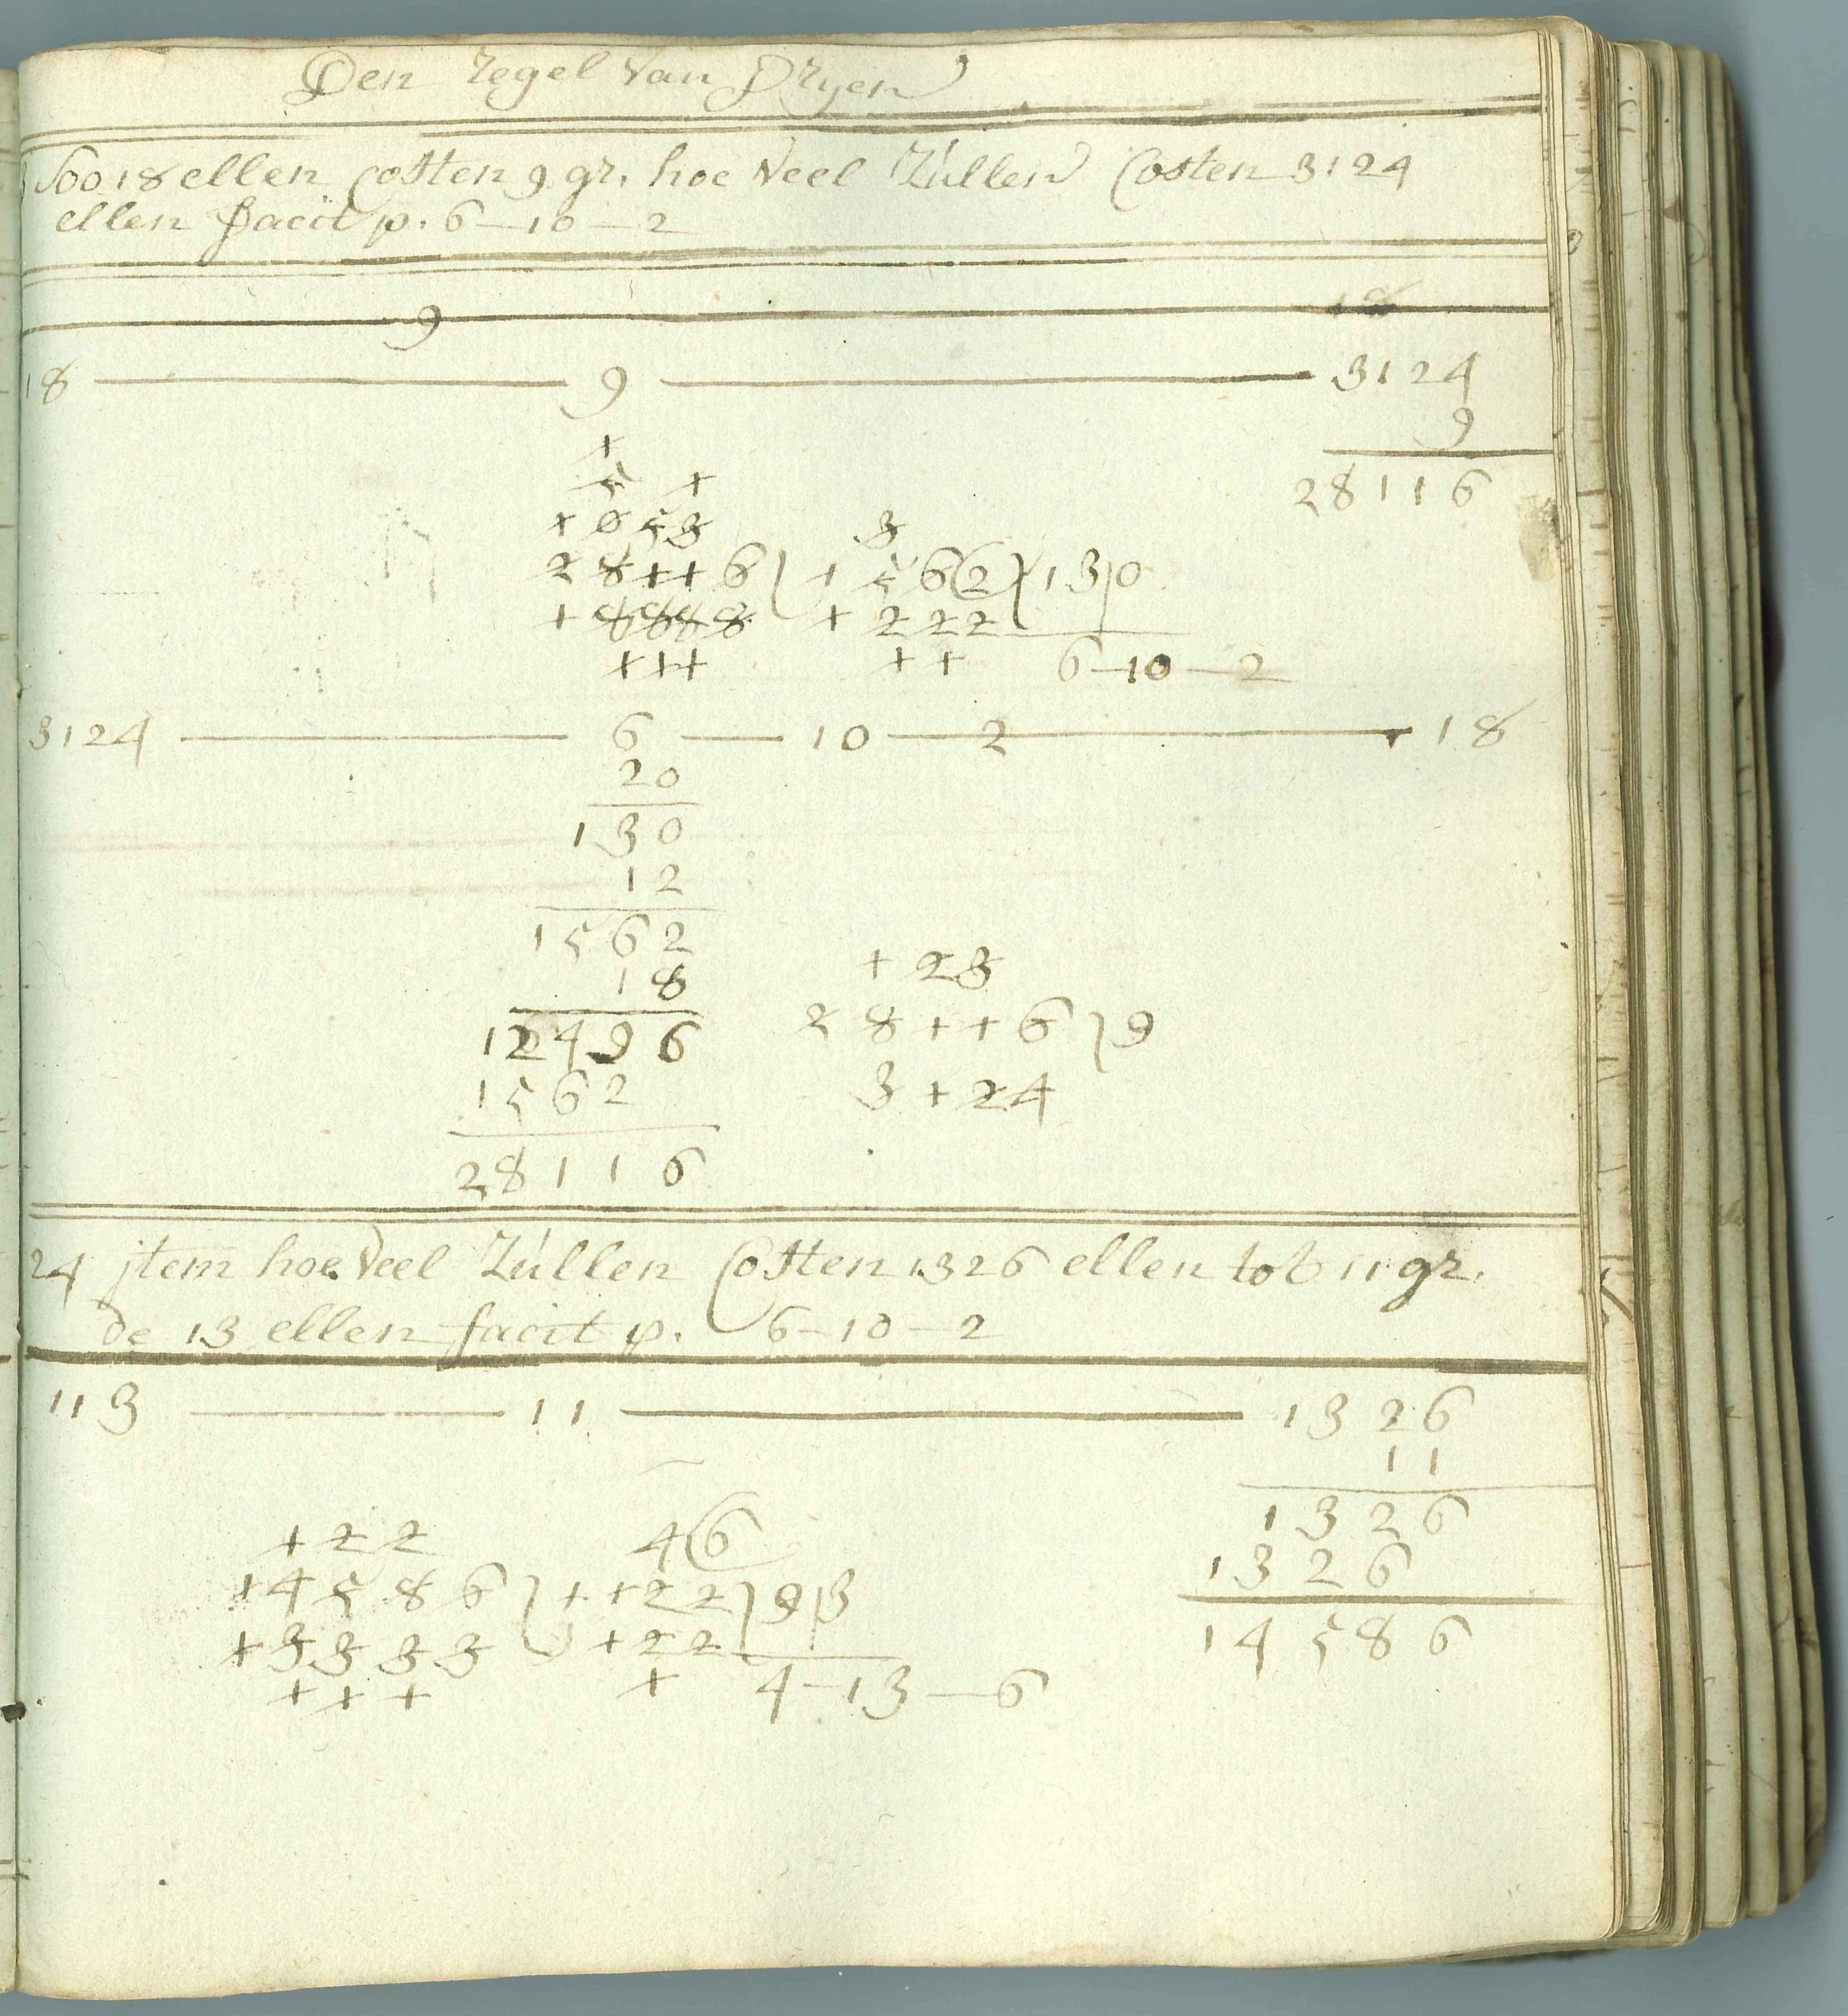 Den regel van Dryen
Soo 18 ellen costen 9 gr. hoe veel Zullen Costen 3124
ellen facit p. 6-10-2
18
9
18 — 9 — 3124
9
28116
+
5 +
+ 0 5 3
3
2 8 + + 6 ) + 5 6 (2) 13|0
+ 8 8 8 8 + 2 2 2
+ + + + + 6-10-2
3124 — 6 — 10 — 2 — 18
20
130
12
1562
18
12496
1562
28116
+ 2 3
2 8 + + 6 ) 9
3 + 2 4
24 jtem hoe veel Zullen Costen 1326 ellen tot 11 gr.
de 13 ellen facit p. 6-10-2
113 — 11 — 1326
11
1326
1326
14586
+ 2 2 4 (6
+ 4 5 8 6 ) + + 2 2 ) 9|3
+ 3 3 3 3 + 2 2
+ + + + 4-13-6